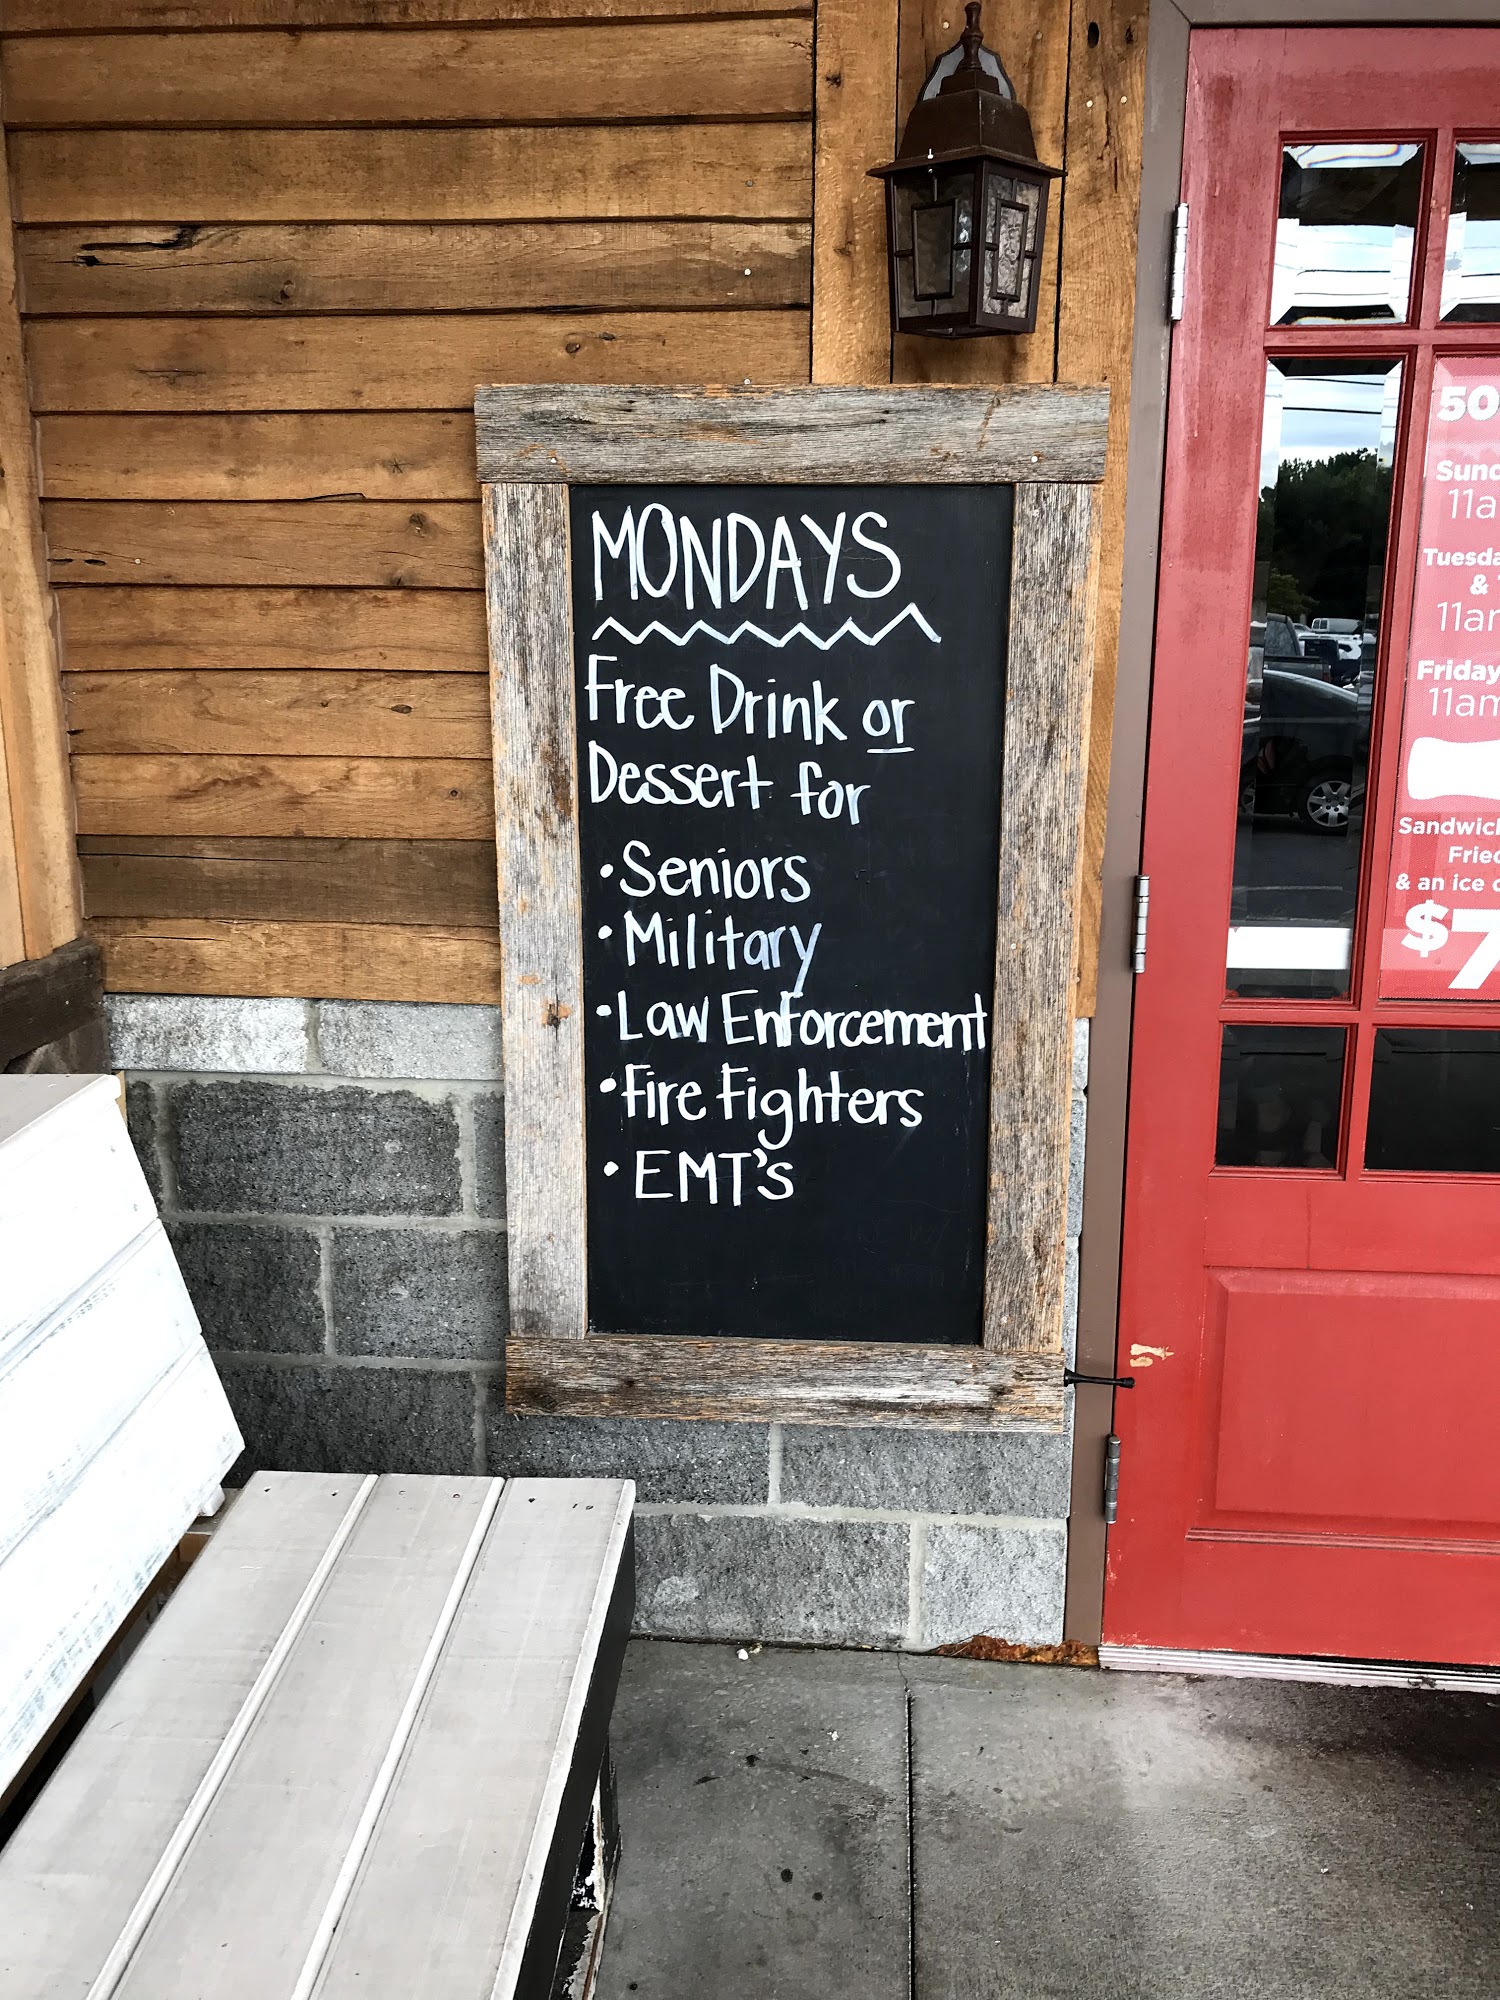 MONDAYS
Free Drink or
Dessert for
• Seniors
• Military
• Law Enforcement
• Fire Fighters
• EMT's
50
11a
&
11a
Friday
11am
& an ice
$7